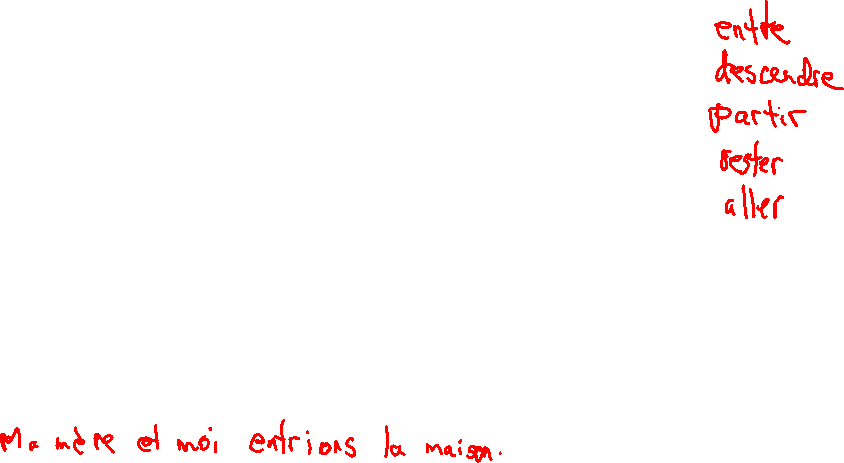 entre
descendre
partir
rester
aller
Ma mère et moi entrions la maison.